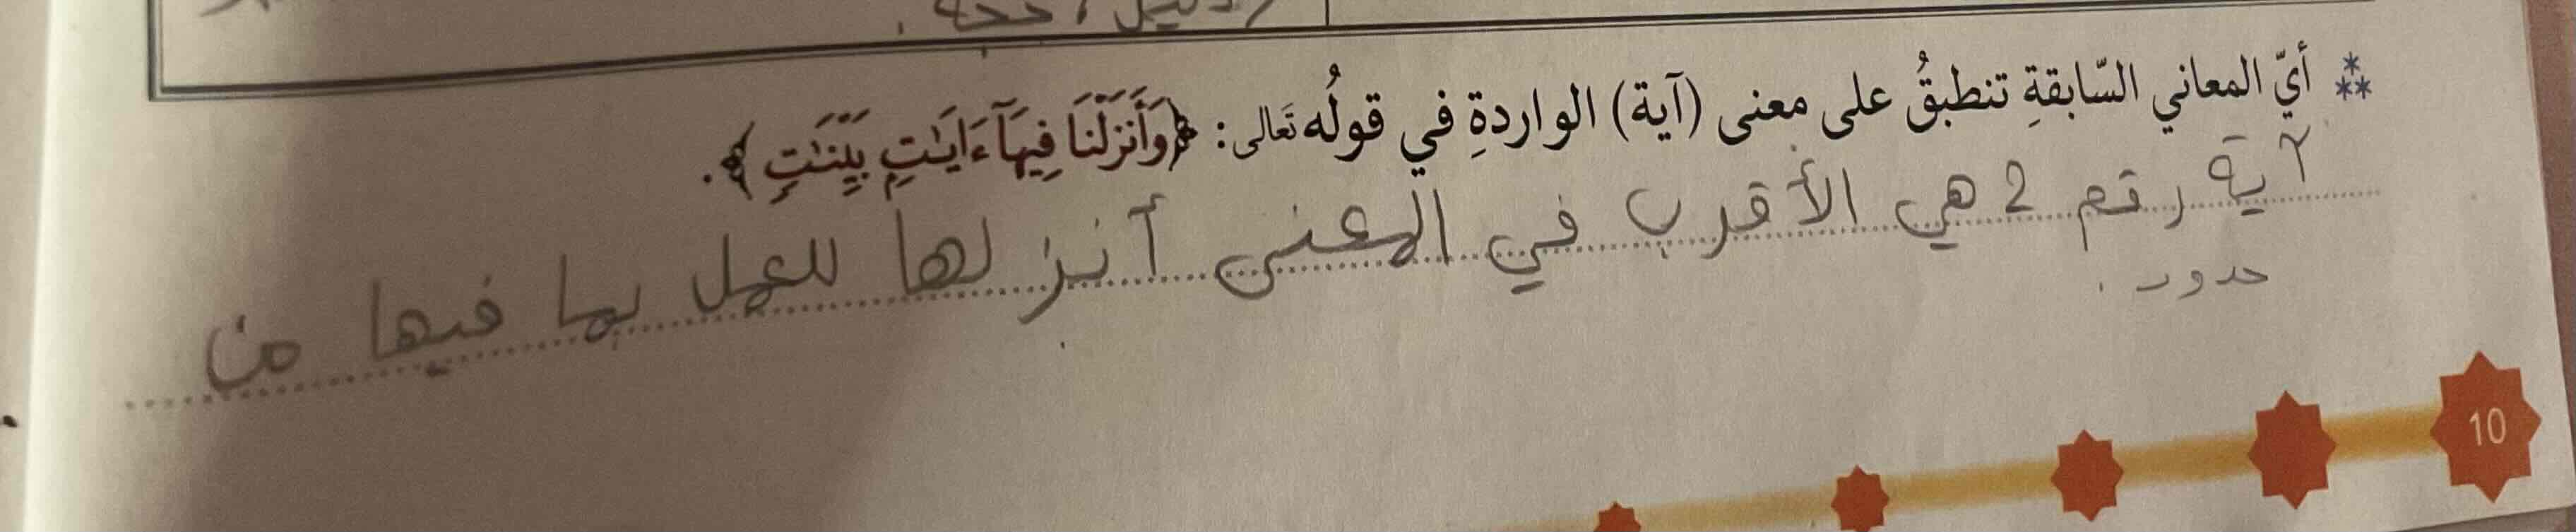 دليل، حجة.
⁂ أيّ المعاني السّابقةِ تنطبقُ على معنى (آية) الواردةِ في قولُه تَعالى: ﴿وَأَنزَلْنَا فِيهَآ ءَايَٰتٍۭ بَيِّنَٰتٍ﴾.
آية رقم 2 هي الأقرب في المعنى أنزلها للعمل بما فيها من
حدود.
10